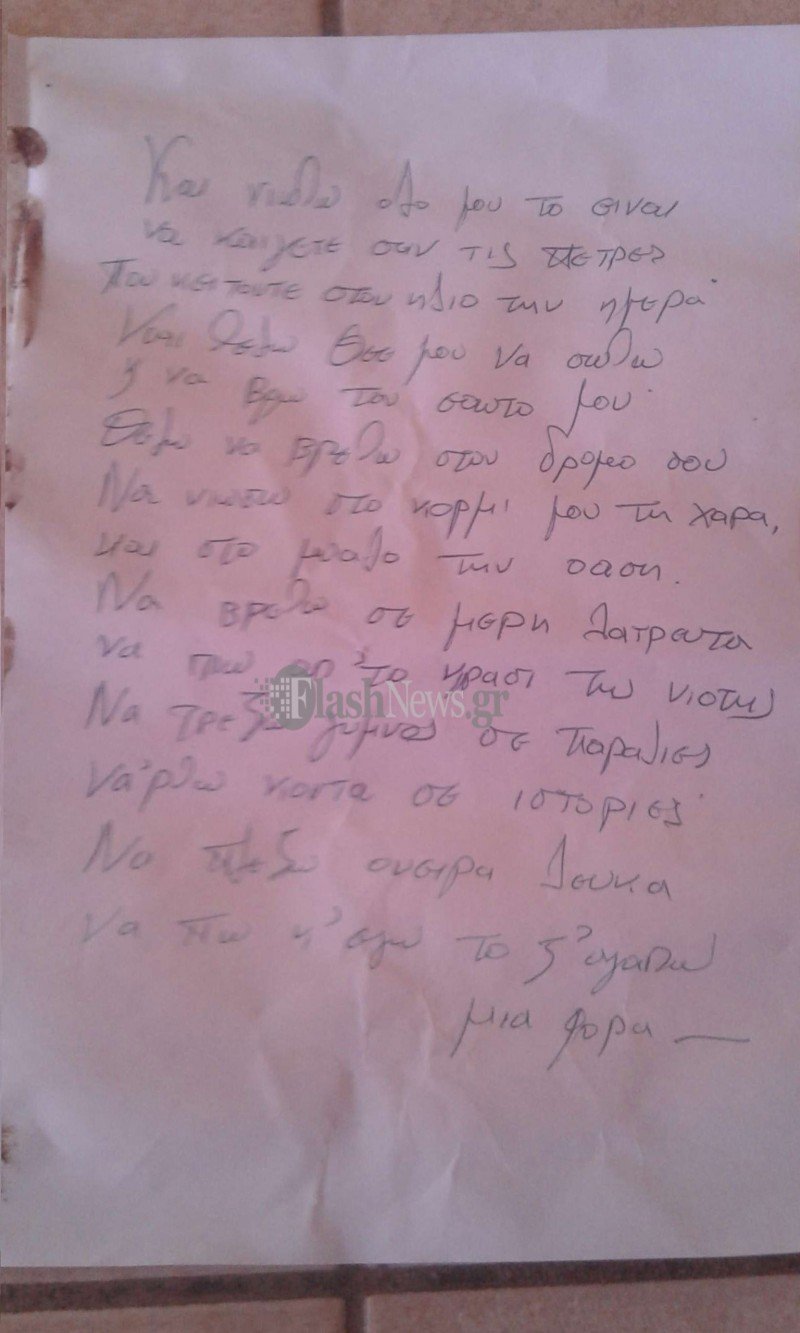 Και νιωθω ολο μου το ειναι
να καιγετε σαν τις πετρες
Που κειτοντε στον ηλιο την ημερα
Και θελω Θεε μου να σωθω
η να βρω τον εαυτο μου
Θελω να βρεθω στον δρομο σου
Να νιωσω στο κορμι μου τη χαρα,
και στο μυαλο την οαση.
Να βρεθω σε μερη λατρευτα
να πιω απ'το κρασι της νιοτης
FlashNews.gr
Να τρεξω γυμνος σε παραλιες
να'ρθω κοντα σε ιστοριες
Να πλεξω ονειρα λευκα
να πω κ'εγω το σ'αγαπω
μια φορα —